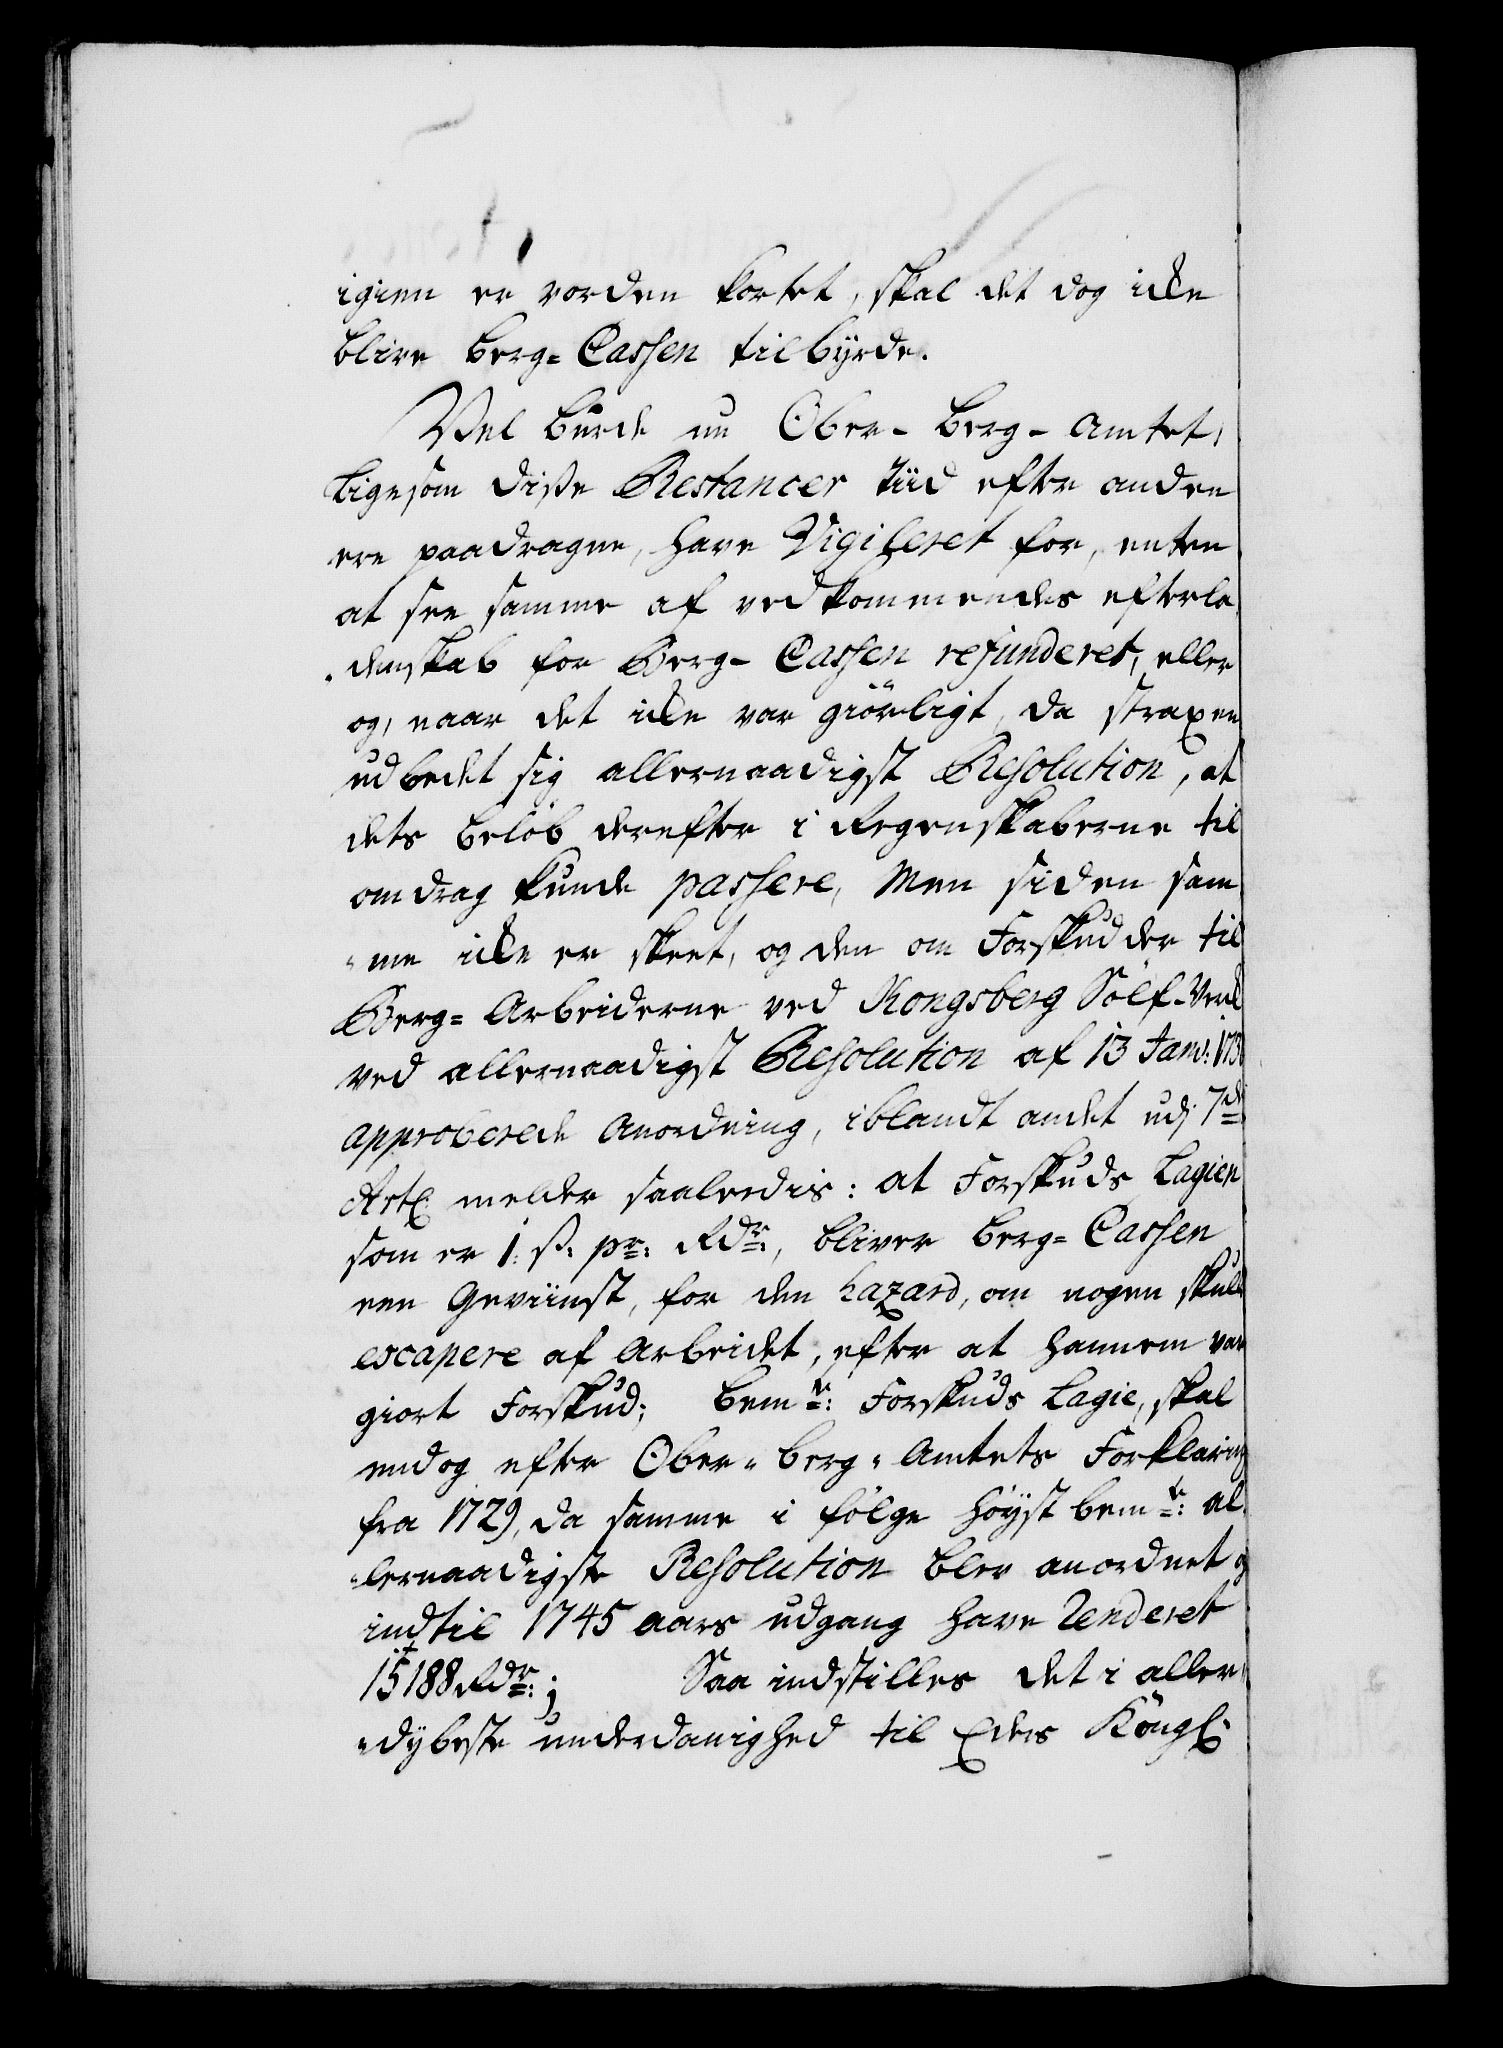 igien er vorden kortet, skal det dog icke
blive Berg= Cassen til byrde.
Vel burde nu Ober- Berg- Amtet,
ligesom disse Restancer tiid efter anden
ere paadragne, have Vigileret for, enten
at see samme af vedkommendes efterla„
„denskab for Berg- Cassen refunderet, eller
og, naar det icke var giörligt, da straxen
udbedet sig allernaadigst Resolution, at
dets belöb derefter i Regenskaberne til
omdrag kunde passere, Men siden sam
„me icke er skeet, og den om Forskudder til
Berg= Arbeiderne ved Kongsberg Sölf-Verck
ved allernaadigst Resolution af 13 Janv: 173
approberede Anordning, iblandt andet udj 7de
Artl: melder saaledis: at Forskuds Lagien
som er 1: ß: pr: Rdr:, bliver Berg= Cassen
een Geviinst, for den hazard, om nogen skulle
escapere af Arbeidet, efter at hannem var
giort Forskud; bemte: Forskuds Lagie, skal
endog efter Ober„ Berg„ Amtets Forklaring
fra 1729, da samme i fölge höyst bemte: al„
„lernaadigste Resolution blev anordnet og
indtil 1745 aars udgang have renderet
15188 Rdr:; Saa indstilles det i aller„
„dybeste underdanighed til Eders Köngl: